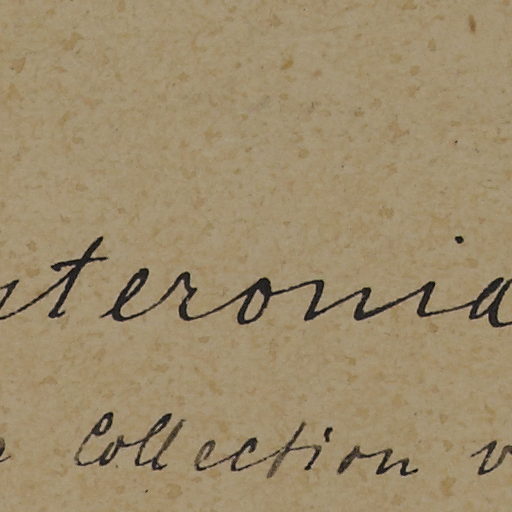 steronia
Collection